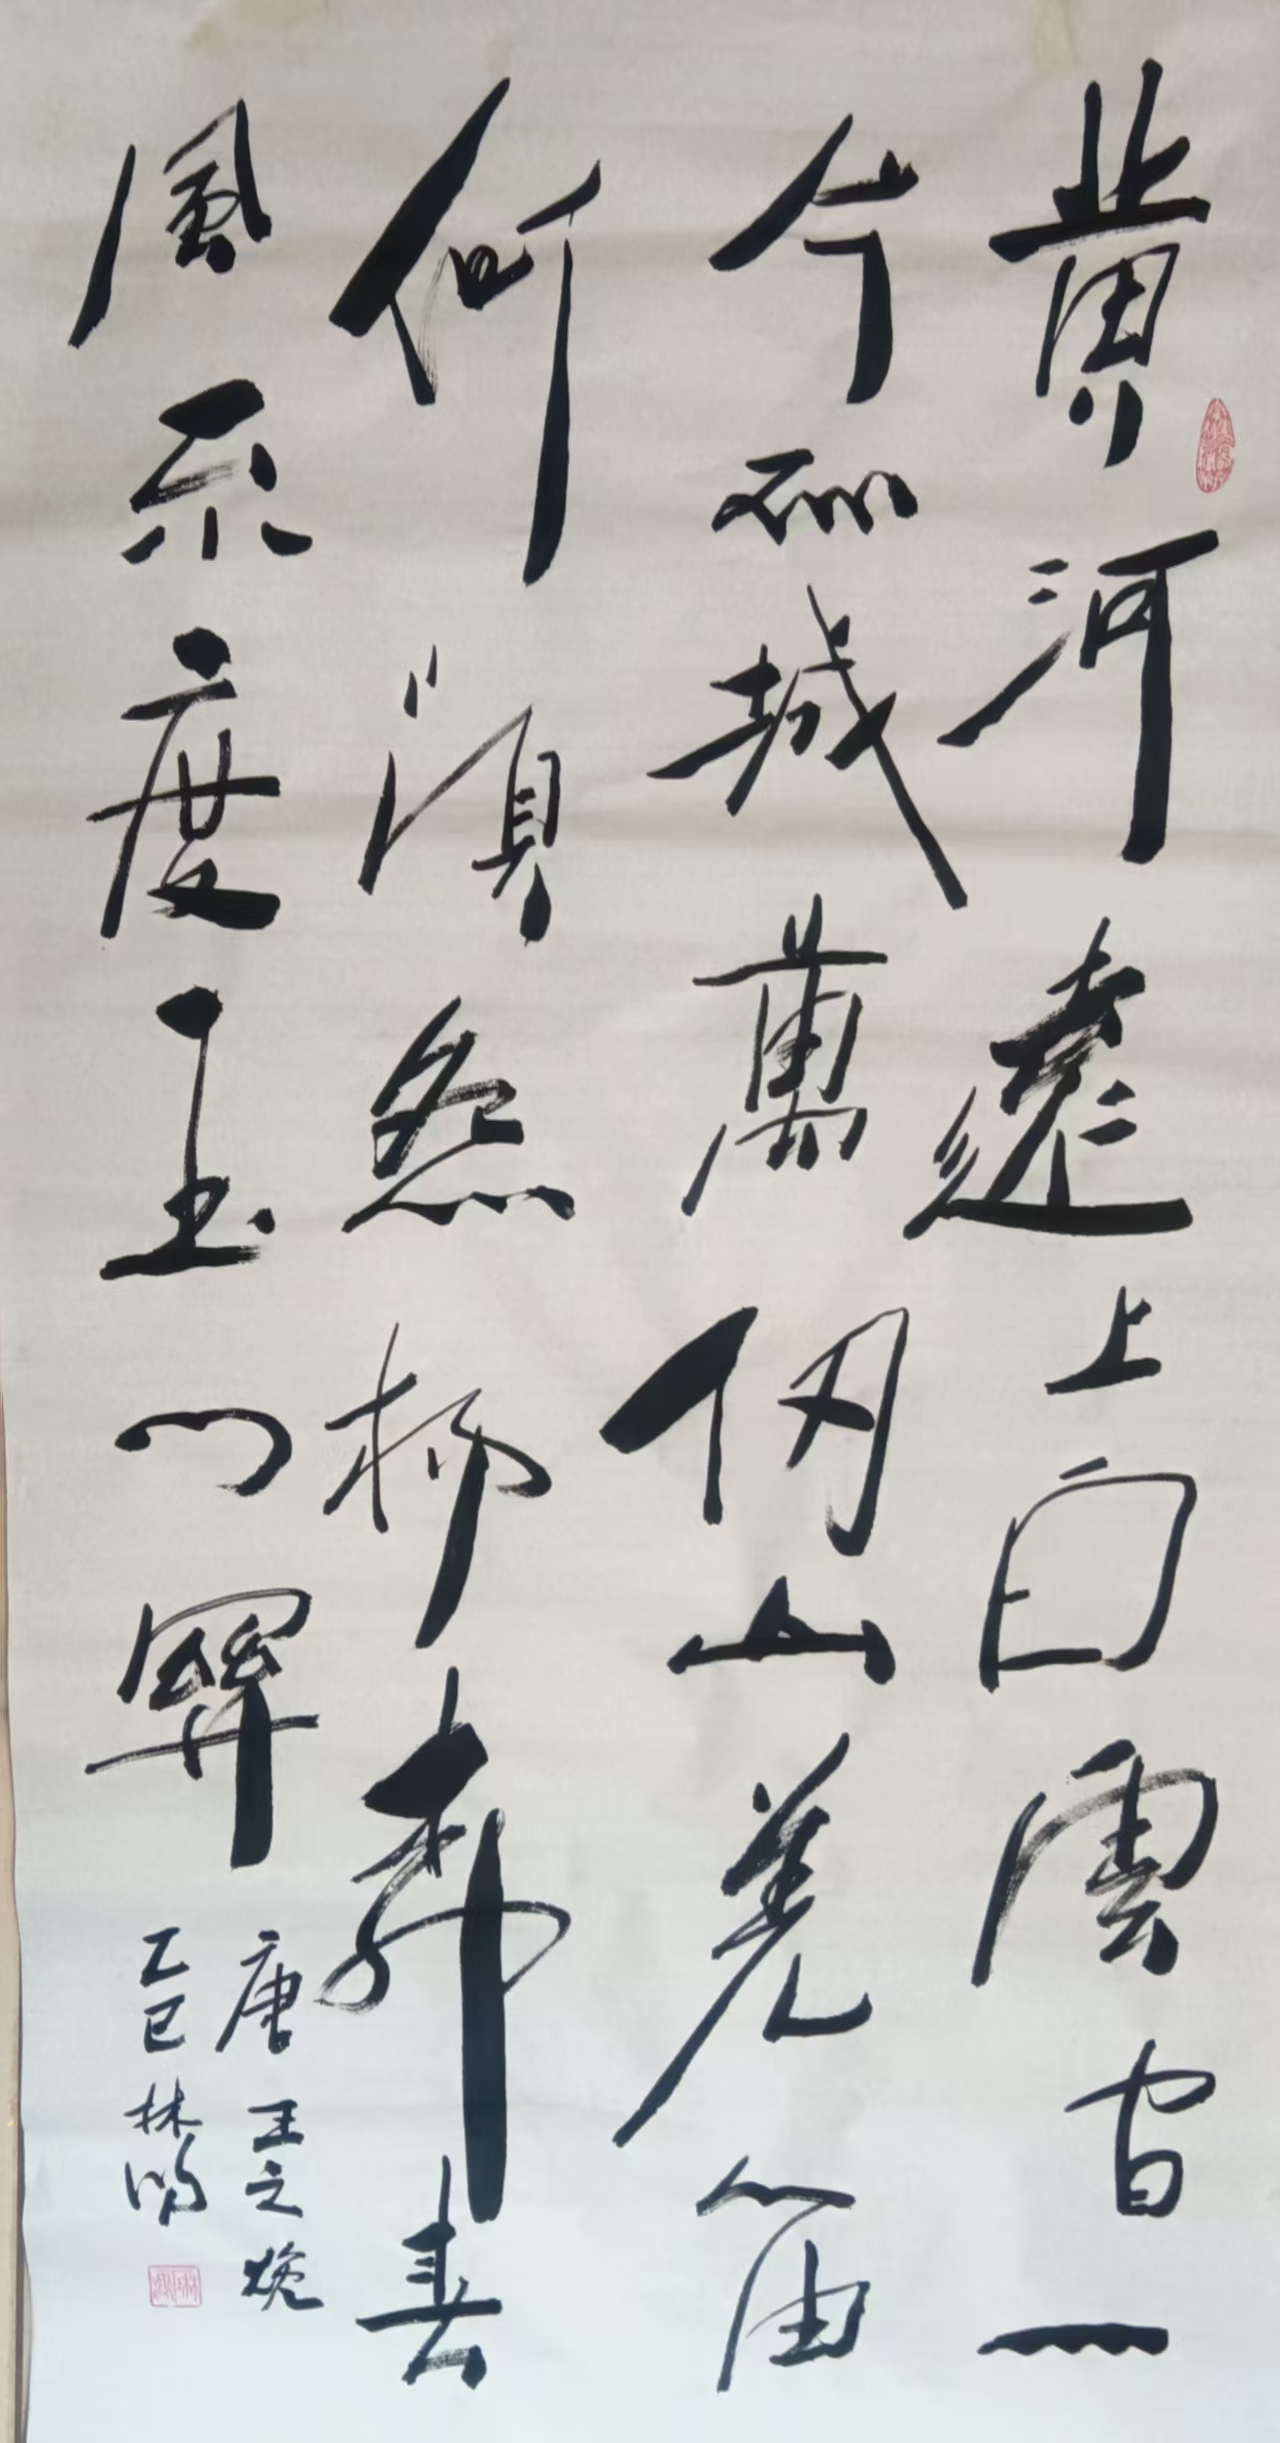 黄河遠上白雲間一
片孤城萬仞山羌笛
何須怨楊柳春
風不度玉門關
唐王之焕
乙巳林鸣